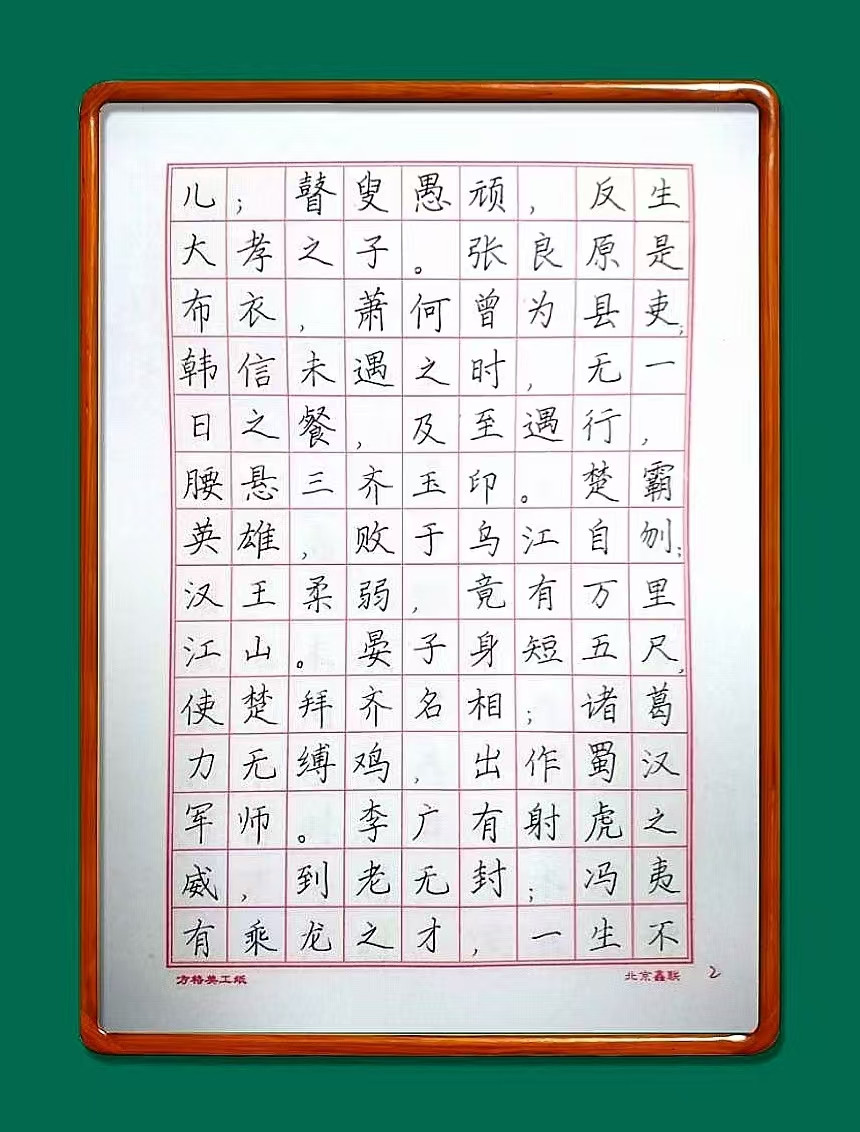 儿；瞽叟愚顽，反生
大孝之子。张良原是
布衣，萧何曾为县吏；
韩信未遇之时，无一
日之餐，及至遇行，
腰悬三齐玉印。楚霸
英雄，败于乌江自刎；
汉王柔弱，竟有万里
江山。晏子身短五尺，
使楚拜齐名相；诸葛
力无缚鸡，出作蜀汉
军师。李广有射虎之
威，到老无封；冯夷
有乘龙之才，一生不
方格美工纸 北京鑫联 2